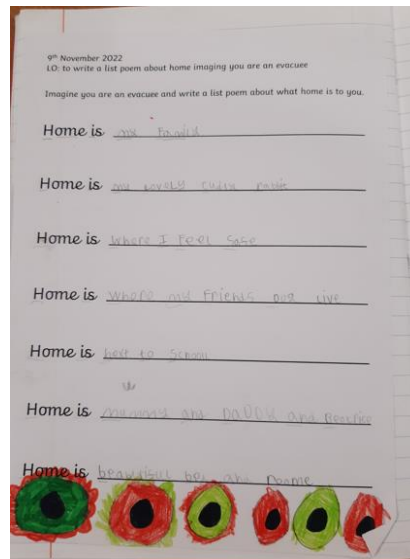 9th November 2022
LO: to write a list poem about home imaging you are an evacuee
Imagine you are an evacuee and write a list poem about what home is to you.
Home is my
Home is my lovely
Home is where I feel safe
Home is where my friends live
Home is next to school
Home is mummy and DaDDy and
Home is